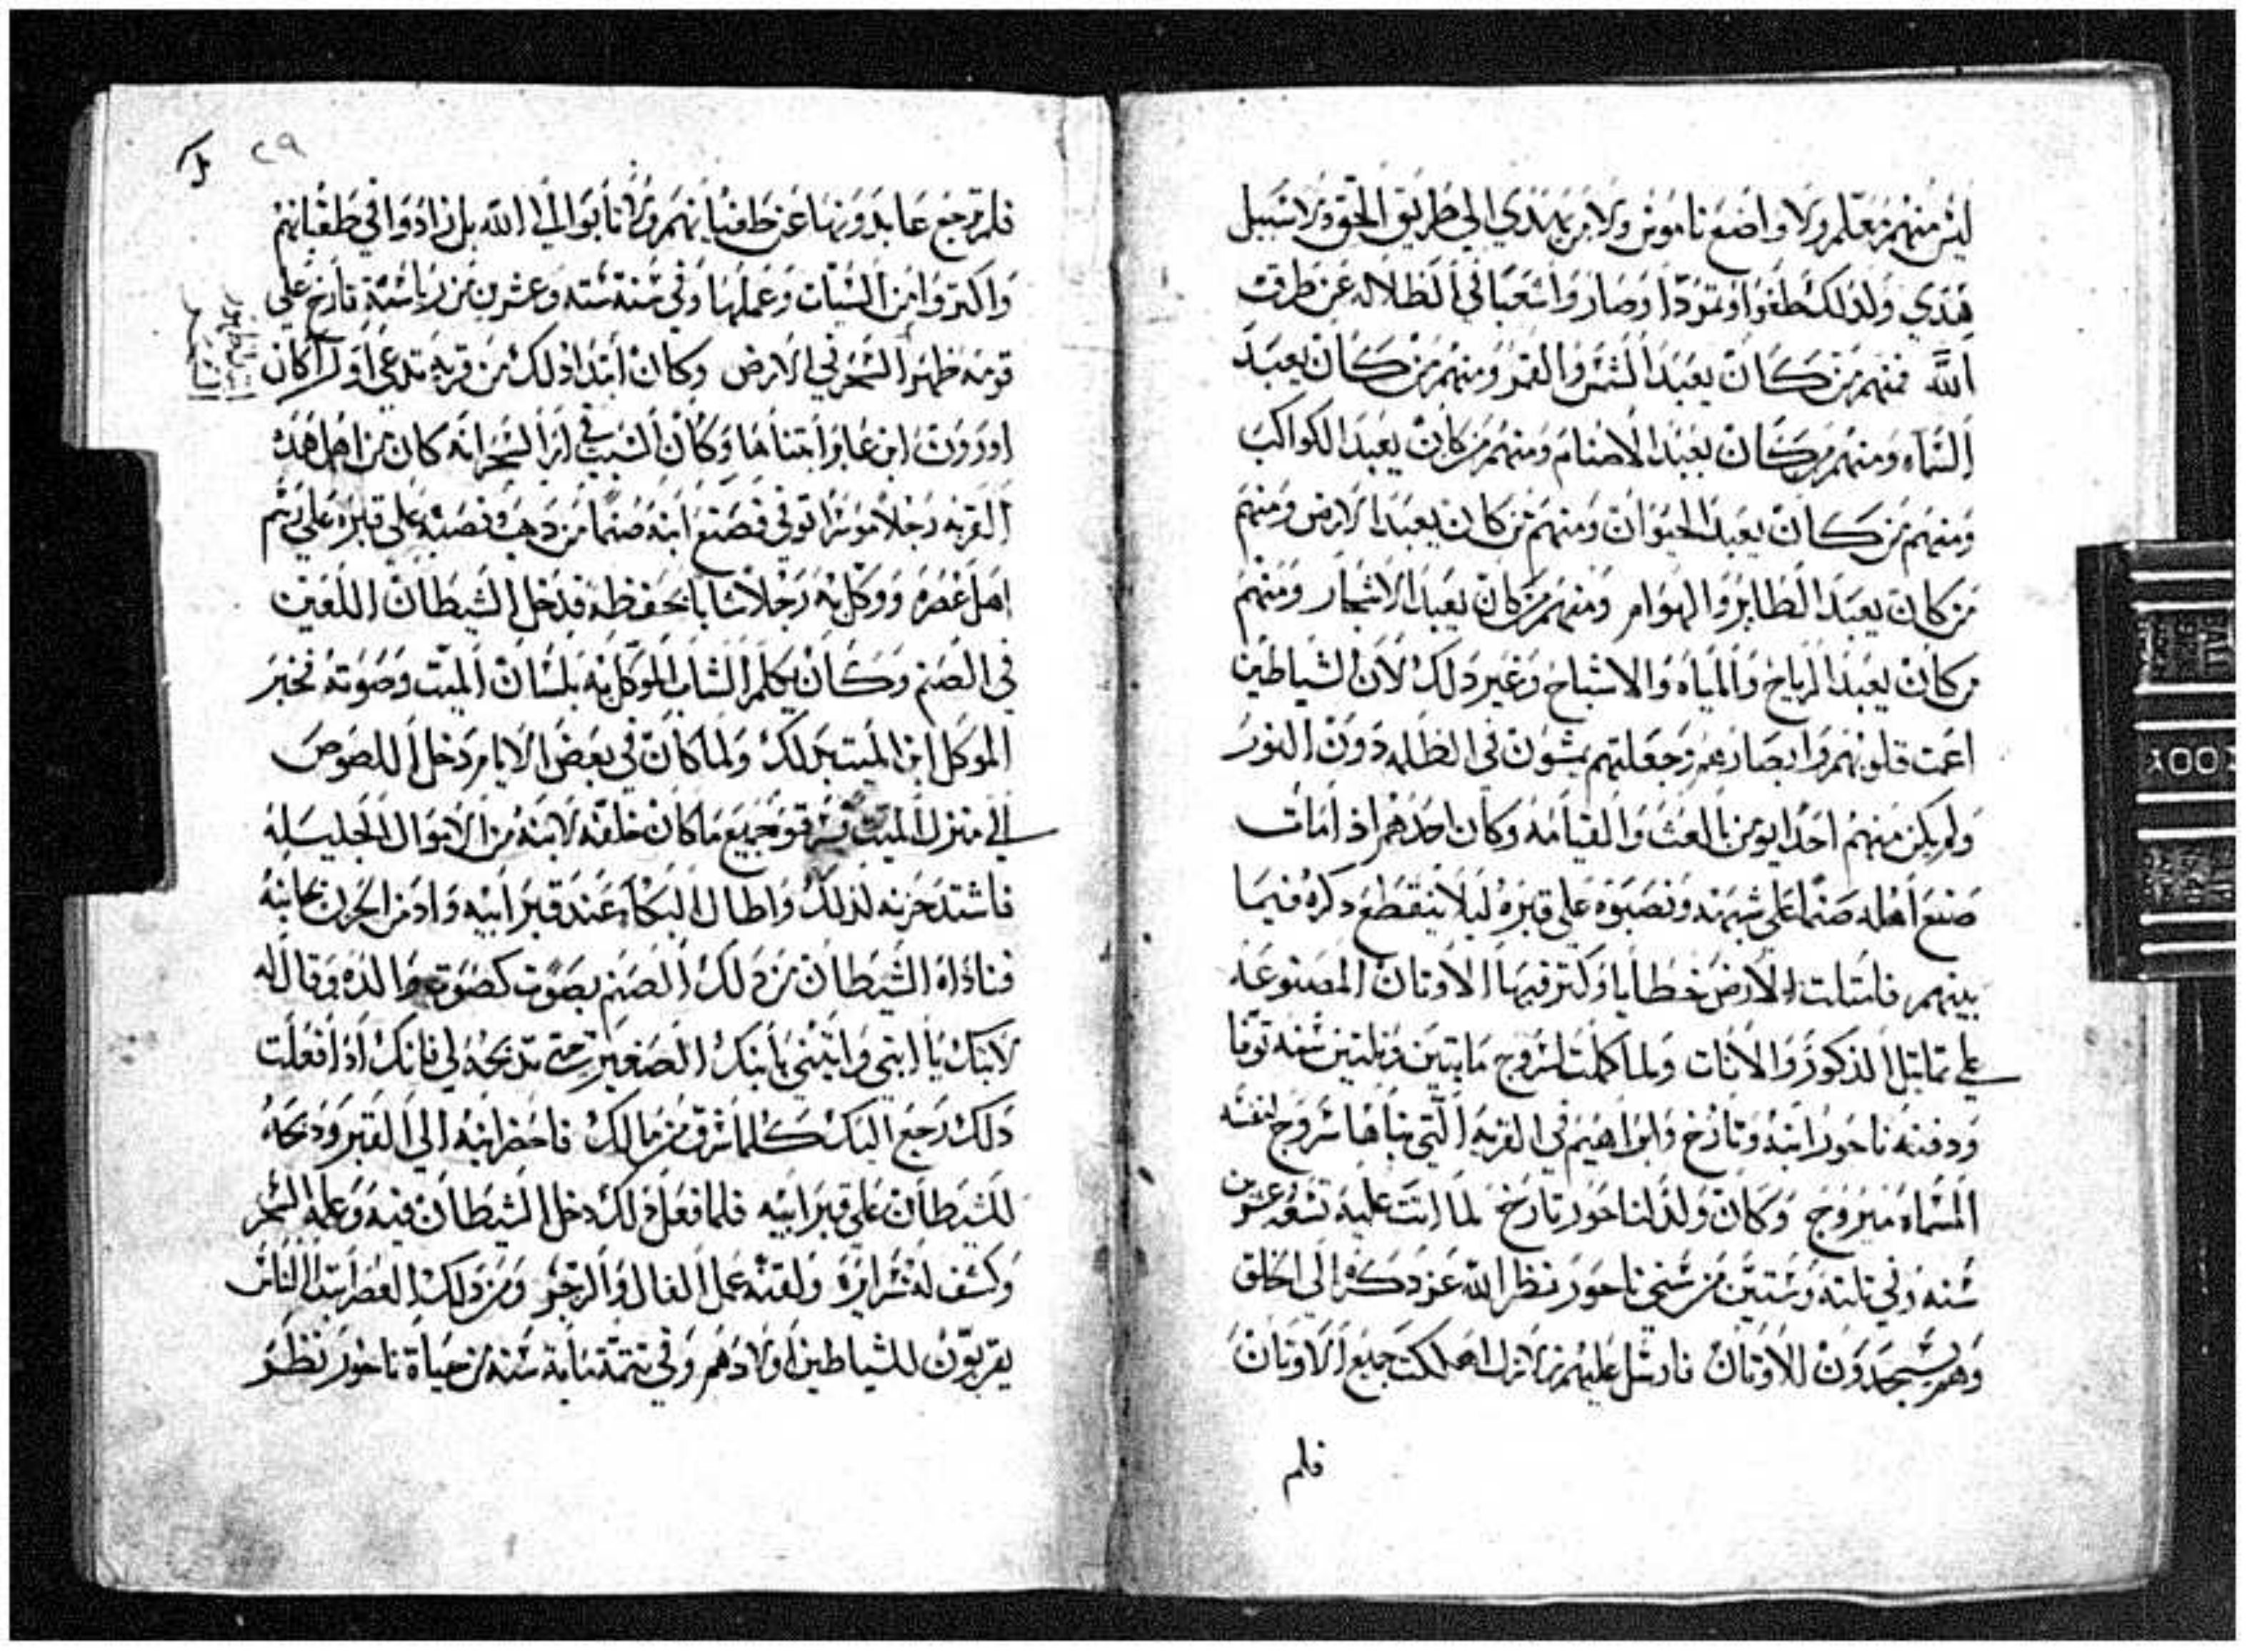 ليس منهم معلم ولا واضع ناموس ولا من يهدي الي طريق الحق ولا سبيل
هدي ولذلك طغوا وتمردا وصار واشعبا في الظلاله عن طرقت
الله فمنهم من كان يعبد الشمس والقمر ومنهم من كان يعبد
السماء ومنهم من كان يعبد الاصنام ومنهم من كان يعبد الكواكب
ومنهم من كان يعبد الحيوان ومنهم من كان يعبد الارض ومنهم
من كان يعبد الطاير والهوام ومنهم من كان يعبد الاشجار ومنهم
من كان يعبد الرياح والمياه والاشباح وغير دلك لان الشياطين
اعمت قلوبهم وابصارهم وجعلتهم يمشون في الظلمه دون النور
ولم يكن منهم احدا يومن بالعث والقيامه وكان احدهم اذ امات
صنع اهله صنما علي شبهه ونصبوه علي قبره ليلا ينقطع دكره فيما
بينهم فامتلت الارض خطايا وكتر فيها الاوتان المصنوعه
علي تماتيل الذكور والانات ولما كملت لشروج مايتين وتلتين سنه توفا
ودفنه ناحور ابنه وتارخ وابراهيم في القريه التي بناها شروج لنفسه
المسماه ميروج وكان ولد لناحور تارخ لما اتت عليه تسعه عشرين
سنه وفي تالته وستين من سني ناحور نظر الله عز دكره الي الخلق
وهم يسجدون للاوتان فارسل عليهم زلازل اهلكت جميع الاوتان
فلم
٢٩
فلم ترجع عابدونها عن طغيانهم ولا تابوا الي الله بل زادوا في طغيانهم
واكتروا من السيات وعملها وفي سنة سته وعشرين من رياسة تارخ علي
قومه ظهر السحر في الارض وكان ابتدا دلك من قريه تدعي اول كان
اوروت ابن عابر ابتناها وكان السبب في امر السحر انه كان من اهل هده
القريه رجلا موسرا توفي فصنع ابنه صنما من دهب ونصبه علي قبره علي رسم
اهل عصره ووكل به رجلا شابا يحفظه فدخل الشيطان اللعين
في الصنم وكان يكلم الشاب الموكل به بلسان الميت وصوته فخبر
الموكل ابن الميت بدلك ولما كان في بعض الايام دخل اللصوص
الي منزل الميت فسرقو جميع ما كان خلفه لابنه من الاموال الجليله
فاشتد حزنه لذلك واطال البكاء عند قبر ابيه وادمن الحزن بجانبه
فناداه الشيطان من دلك الصنم بصوت كصوت والده وقال له
لا تبك يا ابني واتيني بابنك الصغير حتي تدبحه لي فانك اذ افعلت
دلك رجع اليك كلما سرق من مالك فاحضر ابنه الي القبر ودبحه
للشيطان علي قبر ابيه فلما فعل دلك دخل الشيطان فيه وعلمه السحر
وكشف له سرايره ولقنه عمل الفال والزجر ومن دلك العصر ابتدا الناس
يقربون للشياطين اولادهم وفي تتمة ماية سنه من حياة ناحور نظر